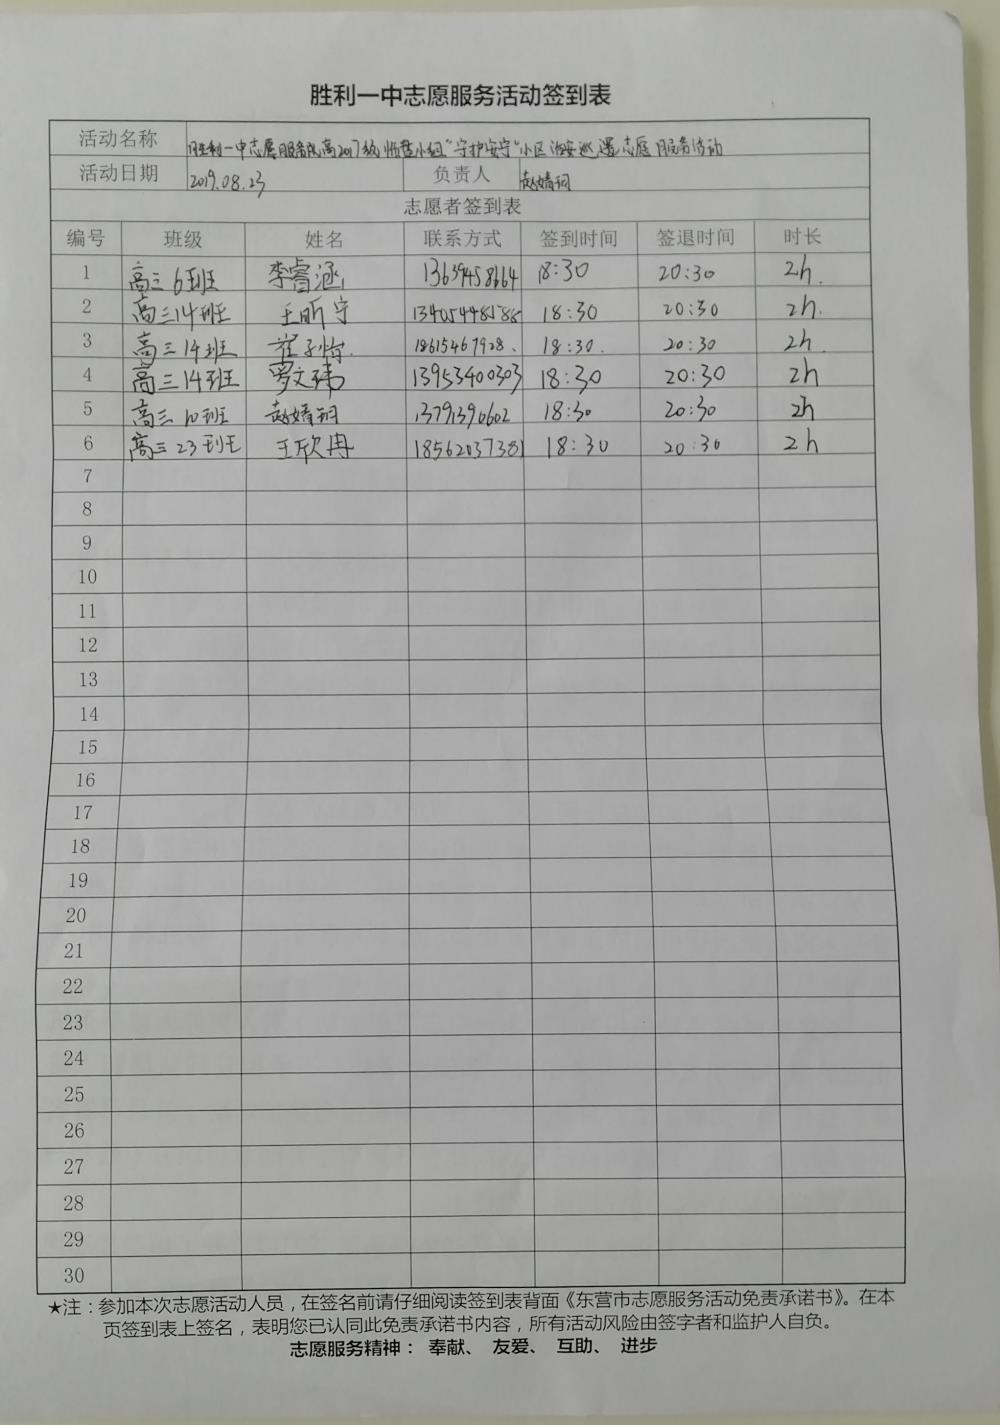 胜利一中志愿服务活动签到表
活动名称 胜利一中志愿服务队高2017级 小组"守护安宁"小区治安巡逻志愿服务活动
活动日期 2019.08.23 负责人 赵婧珂
志愿者签到表
编号 班级 姓名 联系方式 签到时间 签退时间 时长
1 高三6班 李睿涵 13639458664 18:30 20:30 2h.
2 高三14班 王昕宁 13405448588 18:30 20:30 2h.
3 高三14班 崔子怡 18615467928 18:30. 20:30 2h.
4 高三14班 罗文玮 13953400303 18:30 20:30 2h
5 高三10班 赵婧珂 13791390602 18:30 20:30 2h
6 高三23班 王欣冉 18562037381 18:30 20:30 2h
7
8
9
10
11
12
13
14
15
16
17
18
19
20
21
22
23
24
25
26
27
28
29
30
★注：参加本次志愿活动人员，在签名前请仔细阅读签到表背面《东营市志愿服务活动免责承诺书》。在本
页签到表上签名，表明您已认同此免责承诺书内容，所有活动风险由签字者和监护人自负。
志愿服务精神： 奉献、 友爱、 互助、 进步